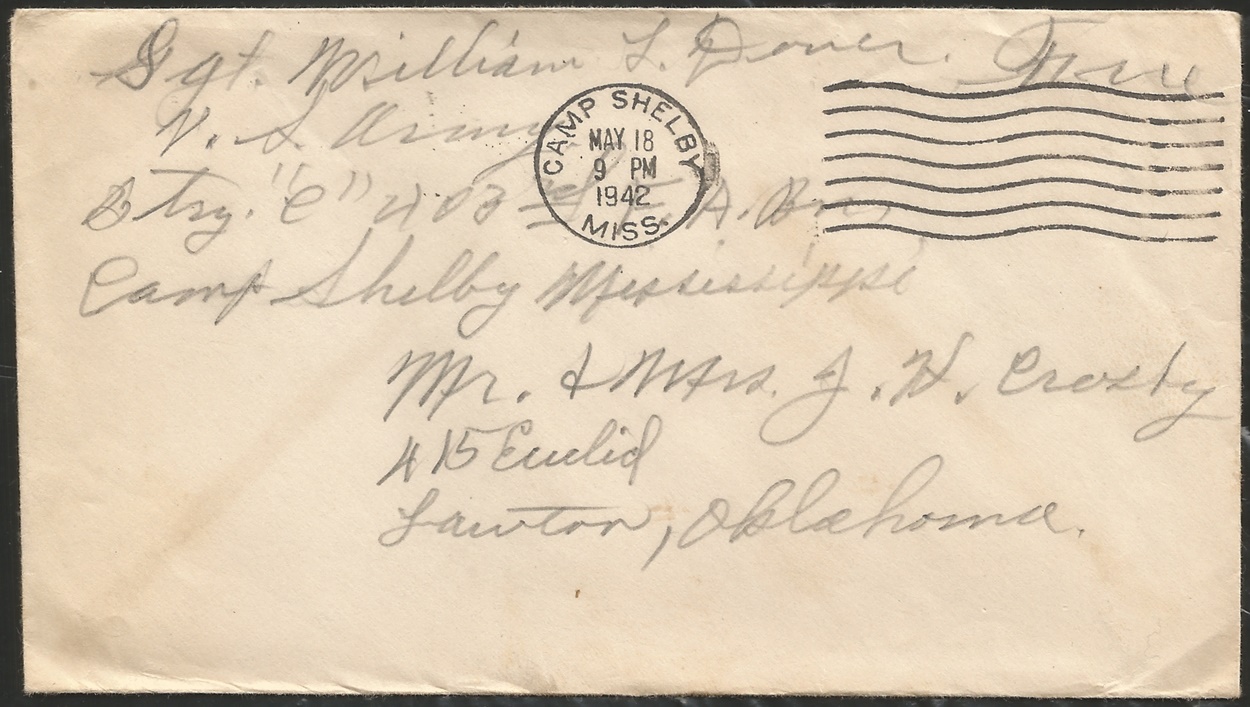 Sgt. William L. Dover. Free
U. S. Army
Btry. "C" 403rd F. A. Bn
Camp Shelby Mississippi
CAMP SHELBY
MAY 18
9 PM
1942
MISS.
Mr. & Mrs. J. H. Crosby
415 Euclid
Lawton, Oklahoma.